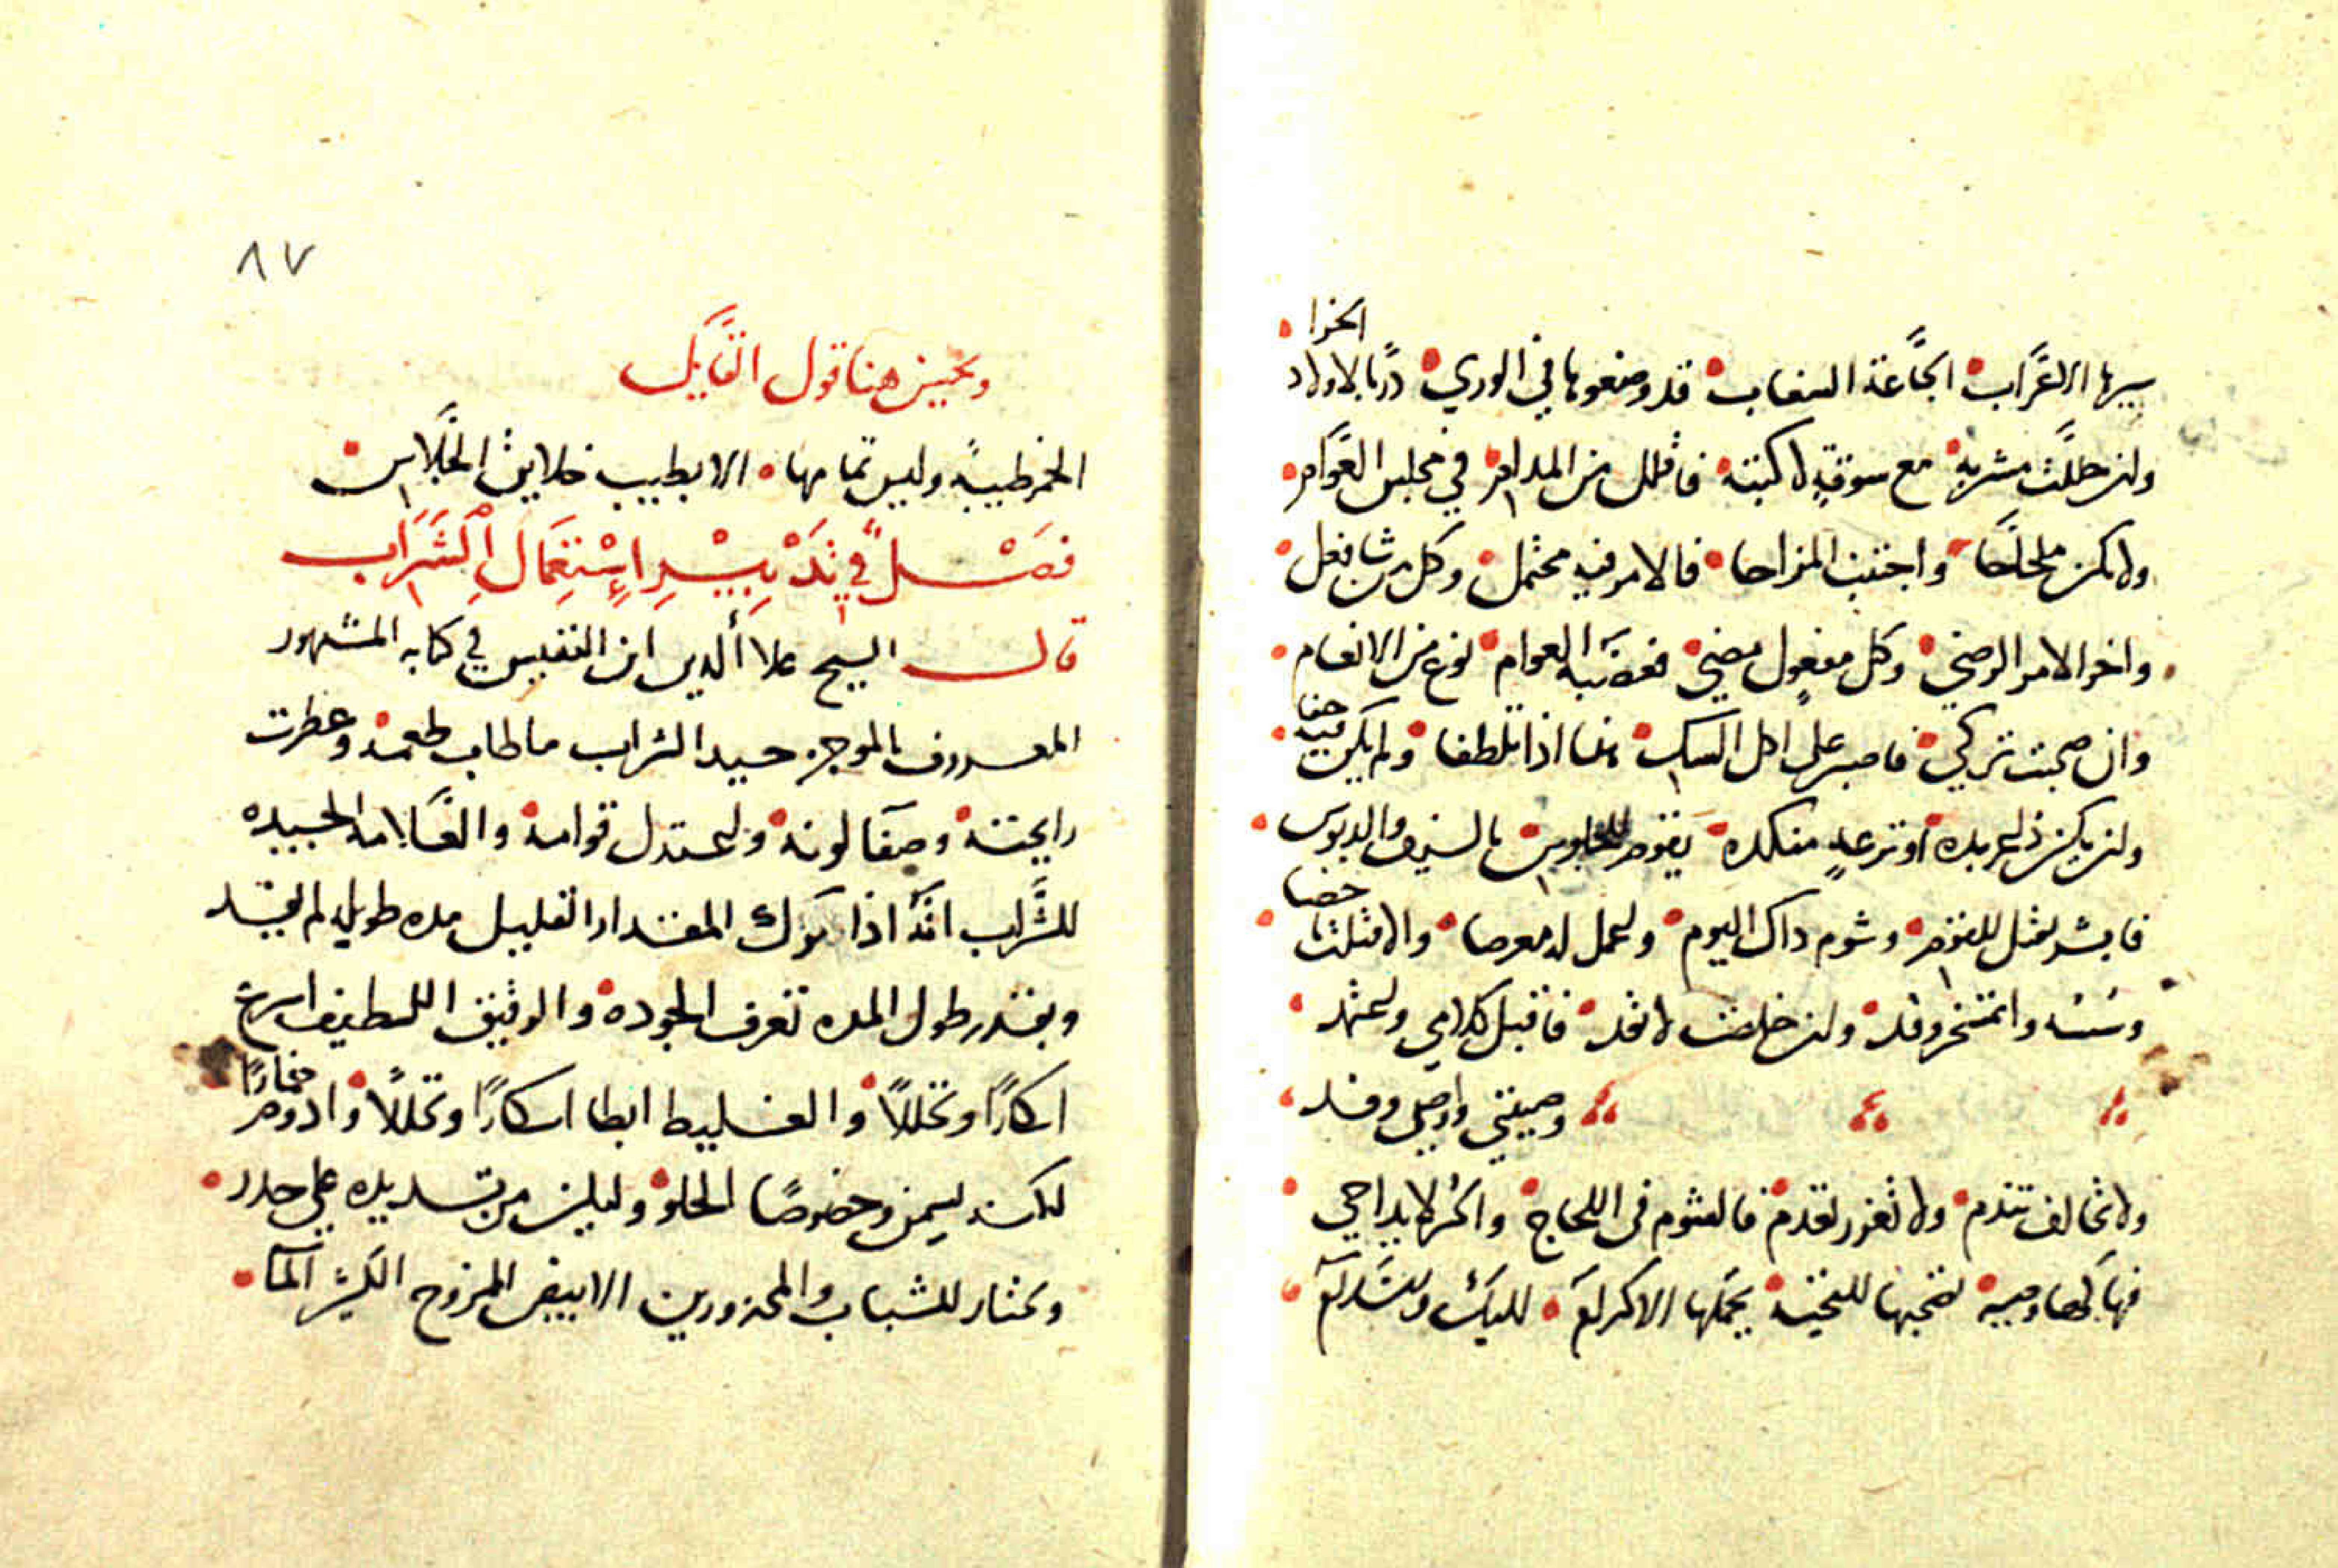 سيرها الاغراب الجاعة السغاب قد وضعوها في الورى درءا بالاولاد الخرا
وان حللت مشربه مع سوقة لا كتبه فاقلل من المدام في مجلس العوام
ولا تكن ملحاحا واجتنب المزاحا فالامر فيه محتمل وكل من شا فعل
واخر الامر الرضي وكل مفعول مضي نوع من الانعام
وان صحبت تركي فاصبر على اكل السك اذا تلطفا ولم يكن فيه جفا
ولن يكن ذا عربده او ترعد منكده يقوم للجلوس بالسيف والدبوس
فابشر بقتل القوم وشوم داك اليوم والامثلثا خصا
وان خلصت لا تعد فاقبل كلامي واعتمد
وصيتي واوصي وقد
ولا تخالف تندم ولا تغرر تعدم فالشوم في اللجاج
فهاكها وصيه تصحبها التحيه يحملها الاكرام لليك والسلام
٨٧
ويحسن هنا قول القايل
الخمر طيبة وليس تمامها الا بطيب خلايق الجلاس
فصل في تدبير استعمال الشراب
قال الشيخ علا الدين ابن النفيس في كتابه المشهور
المعروف بالموجز جيد الشراب ما طاب طعمه وعطرت
رايحته وصفا لونه واعتدل قوامه والعلامة الجيده
للشراب انه اذا ترك المقدار القليل مده طويله لم يفسد
وبقدر طول المده تعرف الجوده والرقيق اللطيف اسرع
اسكارا وتحللا والغليظ ابطا اسكارا وتحللا وادوم خمارا
لكنه يسمن وخصوصا الحلو وليكن من تسديده على حذر
ويختار للشباب والمحرورين الابيض الممزوج الكثير الما